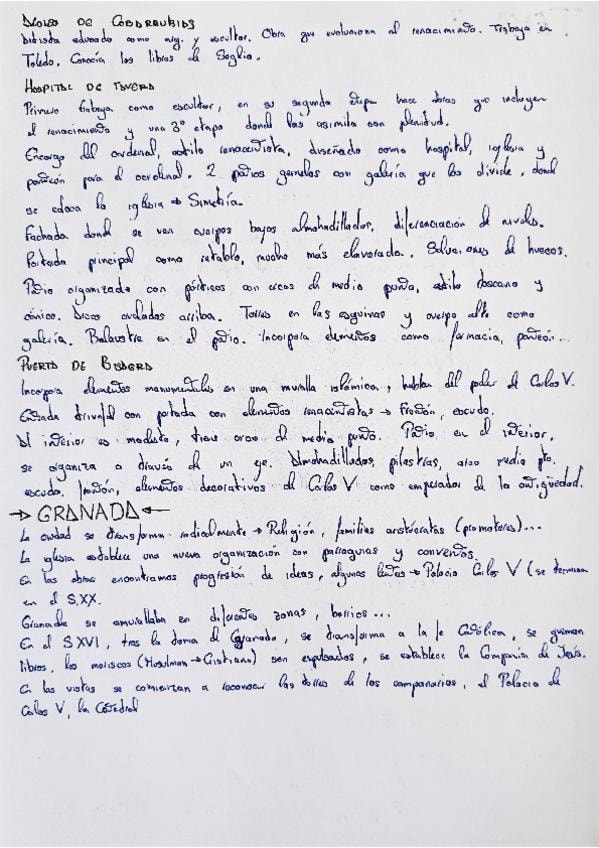 ALONSO DE COVARRUBIAS
Artista educado como arq. y escultor. Obra que evoluciona al renacimiento. Trabaja en
Toledo. Conocía los libros de Serlio.
HOSPITAL DE TAVERA
Primero trabaja como escultor, en su segunda etapa hace obras que incluyen
el renacimiento y una 3ª etapa donde las asimila con plenitud.
Encargo del cardenal, estilo renacentista, diseñado como hospital, iglesia y
panteón para el cardenal. 2 patios gemelos con galería que los divide, donde
se coloca la iglesia → Simetría.
Fachada donde se ven cuerpos bajos almohadillados, diferenciación de niveles.
Portada principal como retablo, mucho más elaborada. de huecos.
Patio organizado con pórticos con arcos de medio punto, estilo toscano y
jónico. Arcos arriba. Torres en las esquinas y cuerpo alto como
galería. Balaustre en el patio. Incorpora elementos como farmacia, panteón...
PUERTA DE BISAGRA
Incorpora elementos monumentales en una muralla islámica, hablan del poder de Carlos V.
Entrada triunfal con portada con elementos renacentistas → Frontón, escudo.
Al interior es modesto, tiene arcos de medio punto. Patio en el interior,
se organiza a través de un eje. Almohadillados, pilastras, arco medio pto.
escudo, frontón, elementos decorativos de Carlos V como emperador de la antigüedad.
→ GRANADA ←
La ciudad se transforma radicalmente → Religión, familias aristócratas (promotores)...
La iglesia establece una nueva organización con parroquias y conventos.
En las obras encontramos progresión de ideas, algunas lentas → Palacio Carlos V (se termina
en el S.XX.
Granada se amurallaba en diferentes zonas, barrios...
En el S XVI, tras la toma de Granada, se transforma a la fe Católica, se queman
libros, los moriscos (Musulman → Cristiano) son expulsados, se establece la Compañía de Jesús.
En las vistas se comienzan a reconocer las torres de los campanarios, el Palacio de
Carlos V, la Catedral